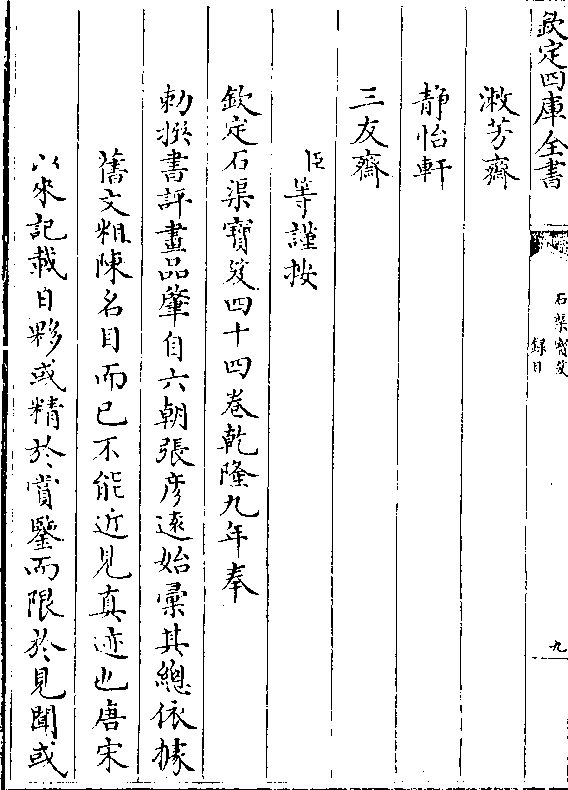 欽定四庫全書
石渠寶笈
録目
九
漱芳齋
靜怡軒
三友齋
臣等謹按
欽定石渠寶笈四十四卷乾隆九年奉
勅撰書評畫品肇自六朝張彦逺始彚其總依據
舊文粗陳名目而已不能近見真迹也唐宋
以來記載日夥或精於賞鑒而限於見聞或